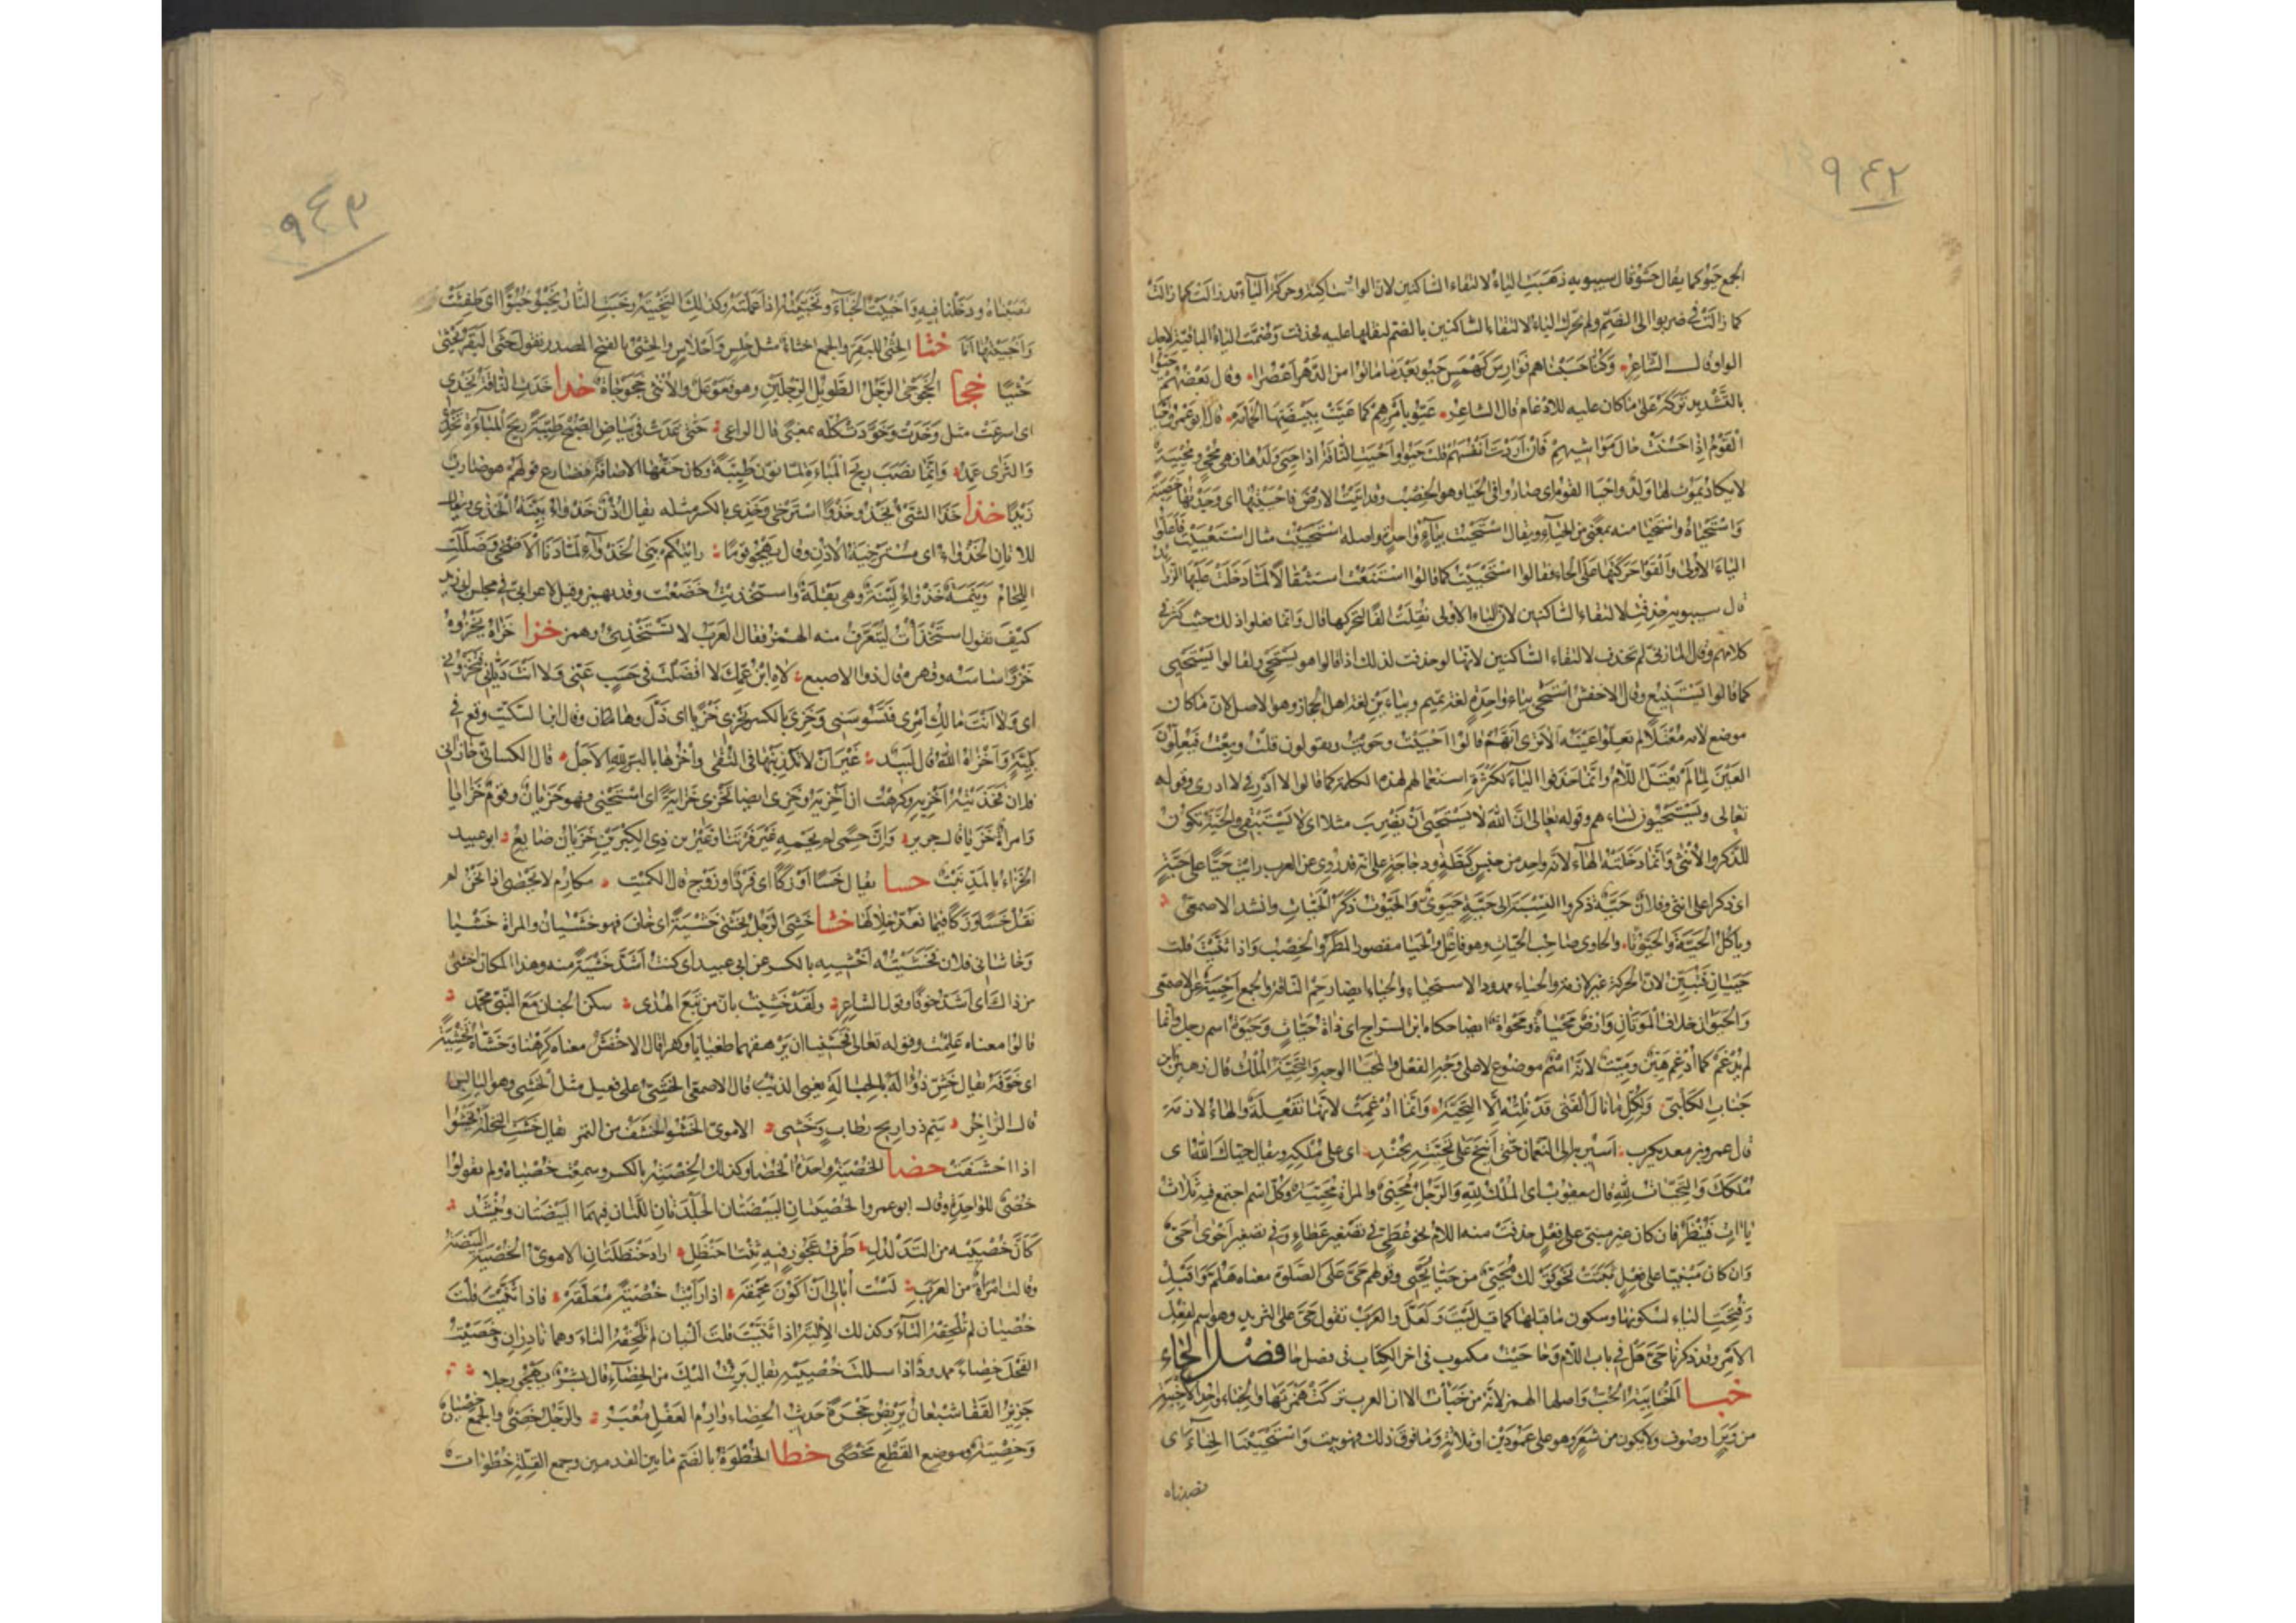 ٩٤٢
الجمع حيوا كما يقال خشوا قال سيبويه ذهبت الياء لالتقاء الساكنين لان الواو ساكنة وحركة الياء قد زالت كما زالت
كما زالت في ضربوا الى الضم ولم تحرك الياء لالتقاء الساكنين بالضم لثقلها عليه فحذفت وضمت الياء الباقية لاجل
الواو قال الشاعر وكنا حسبناهم فوارس كهمس حيوا بعد ما ماتوا من الدهر اعصرا وقال بعضهم حيوا
بالتشديد تركه على ما كان عليه للادغام قال الشاعر عيوا بامرهم كما عيت ببيضتها الحمامة قال ابو عمرو احيا
القوم اذا حسنت حال مواشيهم فان اردت انفسهم قلت حيوا واحيت الناقة اذا حيى ولدها فهي محي ومحيية
لا يكاد يموت لها ولد واحيا القوم اي صاروا في الحيا وهو الخصب وقد اتيت الارض فاحييتها اي وجدتها خصبة
واستحياه واستحيا منه بمعنى من الحياء ويقال استحيت بياء واحدة واصله استحييت مثال استعييت فاعلوا
الياء الاولى والقوا حركتها على الحاء فقالوا استحيت كما قالوا استنعت استثقالا لما دخلت عليها الزوائد
قال سيبويه حذفت لالتقاء الساكنين لان الياء الاولى تقلب الفا لتحركها قال وانما فعلوا ذلك حيث كثر في
كلامهم وقال المازني لم تحذف لالتقاء الساكنين لانها لو حذفت لذلك اذا قالوا هو يستحي ولقالوا يستحيي
كما قالوا يستبيع وقال الاخفش استحى بياء واحدة لغة تميم وبياءين لغة اهل الحجاز وهو الاصل لان ما كان
موضع لامه معتلا لم يعلوا عينه الا ترى انهم قالوا احييت وحويت ويقولون قلت وبعت فيعلون
العين لما لم يعتل اللام وانما حذفوا الياء لكثرة استعمالهم لهذه الكلمة كما قالوا لا ادر في لا ادري وقوله
تعالى ويستحيون نساءهم وقوله تعالى ان الله لا يستحيي ان يضرب مثلا اي لا يستبقي والحية تكون
للذكر والانثى وانما دخلته الهاء لانه واحد من جنس كبطة ودجاجة على انه قد روي عن العرب رايت حيا على حية
اي ذكرا على انثى وفلان حية ذكر والنسبة الى حية حيوي والحيوت ذكر الحيات وانشد الاصمعي
وياكل الحية والحيوتا والحاوي صاحب الحيات وهو فاعل والحيا مقصور المطر والخصب واذا ثنيت قلت
حييان فتبين لان الحركة غير لازمة والحياء ممدود الاستحياء والحياء ايضا رحم الناقة والجمع احيية عن الاصمعي
والحيوان خلاف الموتان وارض محياة ومحواة ايضا حكاه ابن السراج اي ذات حيات وحيوة اسم رجل وانما
لم يدغم كما ادغم هين وميت لانه اسم موضوع لا على وجه الفعل والمحيا الوجه والتحية الملك قال زهير بن
جناب الكلبي ولكل ما نال الفتى قد نلته الا التحية وانما ادغمت لانها تفعلة والهاء لازمة
قال عمرو بن معديكرب اسير به الى النعمان حتى انيخ على تحيته بجندي اي على ملكه ويقال حياك الله اي
ملكك والتحيات لله قال يعقوب اي الملك لله والرجل محيي والمراة محيية وكل اسم اجتمع فيه ثلاث
ياآت فينظر فان كان غير مبني على فعل حذفت منه اللام نحو عطي في تصغير عطاء وفي تصغير احوى احي
وان كان مبنيا على فعل ثبتت نحو قولك محيي من حيا يحيي وقولهم حي على الصلوة معناه هلم واقبل
وفتحت الياء لسكونها وسكون ما قبلها كما قيل ليت ولعل والعرب تقول حي على الثريد وهو اسم لفعل
الامر وقد ذكرنا حي هل في باب اللام وحاحيت مكتوب في اخر الكتاب في فصل حا فصل الخاء
خبا الخابية الحب واصلها الهمز لانه من خبات الا ان العرب تركت همزتها والخباء واحد الاخبية
من وبر او صوف ولا يكون من شعر وهو على عمودين او ثلاثة وما فوق ذلك فهو بيت واستخبينا الخباء اي
نصبناه
٩٤٣
نصبناه ودخلنا فيه واخبيت الخباء وتخبيته اذا عملته وكذلك التخبية وخبت النار تخبو خبوا اي طفئت
واخبيتها انا خثا الخثي للبقر والجمع اخثاء مثل حلس واحلاس والخثي بالفتح المصدر تقول خثى البقر يخثي
خثيا خجا الخجوجى الرجل الطويل الرجلين وهو فعوعل والانثى خجوجاة خدا خدت الناقة تخدي
اي اسرعت مثل وخدت وخودت كله بمعنى قال الراعي حتى غدت في بياض الصبح طيبة ريح المباءة تخدي
والثرى عمد وانما نصب ريح المباءة لما نون طيبة وكان حقها الاضافة فضارع قولهم هو ضارب
زيدا خذا خذا الشئ يخذو خذوا استرخى وخذي بالكسر مثله يقال اذن خذواء بينة الخذى ويقال
للاتان الخذواء اي مسترخية الاذن وقال يهجو قوما رايتكم بني الخذواء لما دنا الاضحى وصللت
اللحام وينمة خذواء لينة وهي بقلة واستخذيت خضعت وقد يهمز وقيل لاعرابي في مجلس ابي زيد
كيف تقول استخذات ليتعرف منه الهمز فقال العرب لا تستخذئ وهمز خزا خزاه يخزوه
خزوا ساسه وقهره قال ذو الاصبع لاه ابن عمك لا افضلت في حسب عني ولا انت دياني فتخزوني
اي ولا انت مالك امري فتسوسني وخزي بالكسر يخزى خزيا اي ذل وهان وقال ابن السكيت وقع في
بلية واخزاه الله قال لبيد غير ان لا تكذبنها في التقى واخزها بالبر لله الاجل قال الكسائي خازاني
فلان فخذيته اخزيه وكرهت ان اخزيه وخزي ايضا يخزى خزاية اي استحيى فهو خزيان وقوم خزايا
وامراة خزيا قال جرير وان حمى لم يحمه غير فرتنا وغير بن ذي الكيرين خزيان ضايع ابو عبيد
الخزاء بالمد نبت خسا يقال خسا او زكا اي فرد او زوج قال الكميت مكارم لا تحصى اذا نحن لم
نقل خسا وزكا فيما نعد خلالها خشا خشي الرجل يخشى خشية اي خاف فهو خشيان والمراة خشيا
وخاشاني فلان فخشيته اخشيه بالكسر عن ابي عبيد اي كنت اشد خشية منه وهذا المكان اخشى
من ذاك اي اشد خوفا وقول الشاعر ولقد خشيت بان من تبع الهدى سكن الجنان مع النبي محمد
قالوا معناه علمت وقوله تعالى فخشينا ان يرهقهما طغيانا وكفرا قال الاخفش معناه كرهنا وخشاه تخشية
اي خوفه يقال خش ذؤالة بالحبالة يعني الذئب قال الاصمعي الخشي على فعيل مثل الحشي وهو اليابس
قال الراجز الاموي الخشو الخشف من التمر يقال خشت النخلة تخشوا
اذا احشفت خصا الخصية واحدة الخصا وكذلك الخصية بالكسر وسمعت خصياه ولم يقولوا
خصي للواحدة وقال ابو عمرو الخصيتان البيضتان الجلدتان اللتان فيهما البيضتان وينشد
كان خصييه من التدلدل ظرف عجوز فيه ثنتا حنظل اراد حنظلتان الاموي الخصية البيضة
وقالت امراة من العرب لست ابالي ان اكون محمقة اذا رايت خصية معلقة فاذا ثنيت قلت
خصيان لم تلحقه التاء وكذلك الالية اذا ثنيت قلت اليان لم تلحقه التاء وهما نادران وخصيت
الفحل خصاء ممدود اذا سللت خصييه يقال برئت اليك من الخصاء قال بشر يهجو رجلا
جزيز القفا شبعان يربض حجرة حديث الخصاء وارم العفل معبر والرجل خصي والجمع خصيان
وخصية وموضع القطع مخصى خطا الخطوة بالضم ما بين القدمين وجمع القلة خطوات